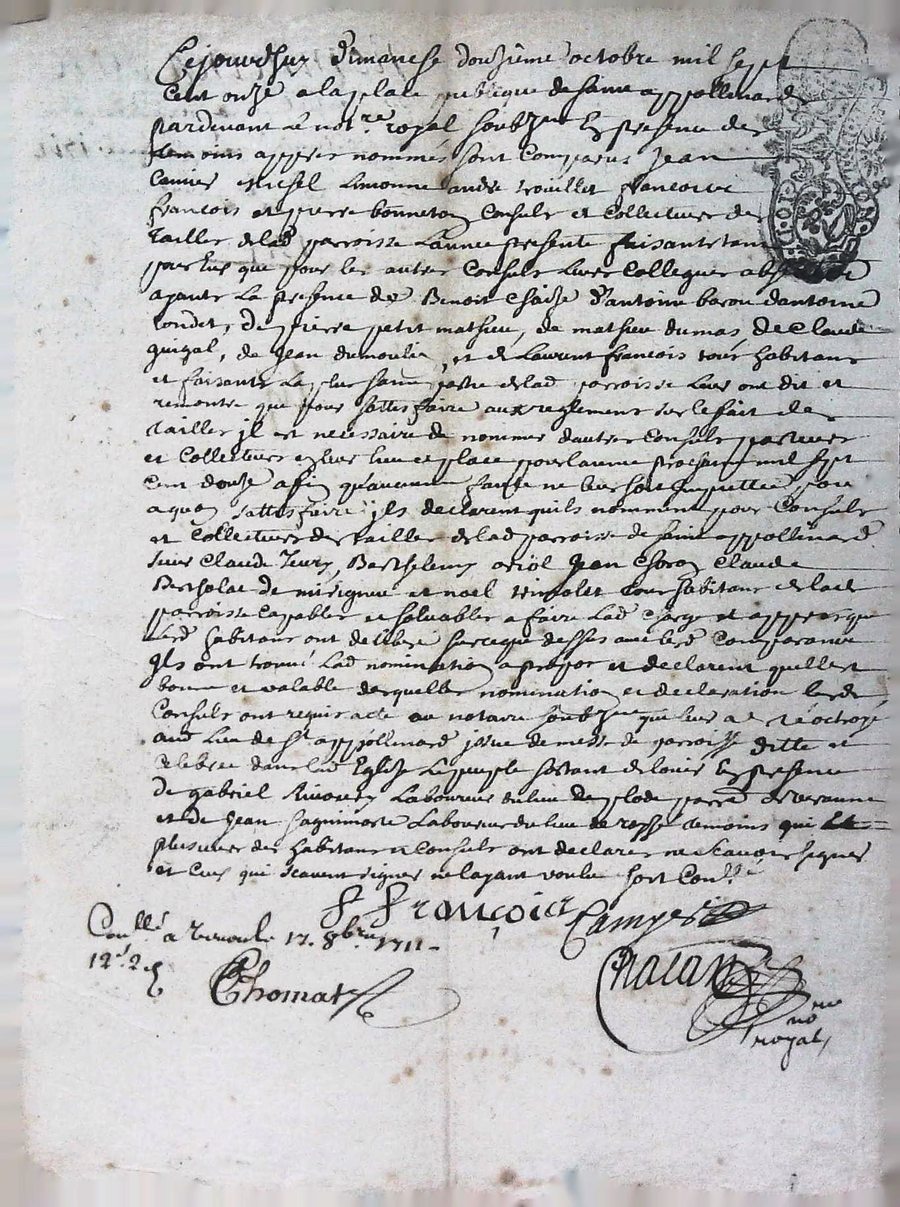 Cejourdhuy dimanche douzième octobre mil sept
cent onze a la place publicque de saint appollinard
pardevant le no.re royal soubz.né En presence des
temoins appres nommés sont comparus Jean
Camier Michel Limonne andre trouillet francois
francois et pierre bonneton Consuls et Collecteurs des
Tailles de lad parroisse Lannee presente faisants tant
pour lus que pour les autres Consuls leurs Collegues
ayants La presence de Benoit Chaize d'antoine barou dantoine
londet, de pierre petit mathieu, de mathieu dumas, de Claude
guigal, de Jean dumoulin, et de Laurent francois tous habitans
et faisants La plus saine partie de lad parroisse Leurs ont dit et
remontre que pour sattisfaire aux reglements sur le fait des
Tailles jl est necessaire de nommer dautres Consuls
et Collecteurs en leur lieu et place pour lannee prochaine mil sept
cent douze afin quaucune faute ne leur soit jmputtee pour
a quoy sattisfaire jls declarent quils nomment pour Consuls
et Collecteurs des tailles de lad parroisse de saint appollinard
sieur Claude Barthelemy oriol Jean Choron Claude
Bertholat de et noel trimolet tous habitans de lad
parroisse Capables et solvables a faire Lad Charge et appres que
lesd habitans ont delibere sur ce que dessus avec lesd Comparants
Jls ont trouvé Lad nomination a propos et declarent quelle est
bonne et valable desquelles nomination et declaration lesd
Consuls ont requis acte au notaire soubz.né que leur a eté octroyé
aud Lieu de S.t appollinard jssue de messe de parroisse ditte et
celebree dans lad Eglise Le peuple sortant dicelle En presence
de gabriel Laboureur du lieu de plode parr.e de veranne
et de Jean Laboureur du lieu de temoins qui
plusieurs des habitans et Consuls ont declarer ne scavoir signer
et Ceux qui scavent signer ne layant voulu soit Con.llé
f francois Camyer
Con.llé a 17. 8bre 1711
12.s 2.d
Thomas Chatan
no.re
royal